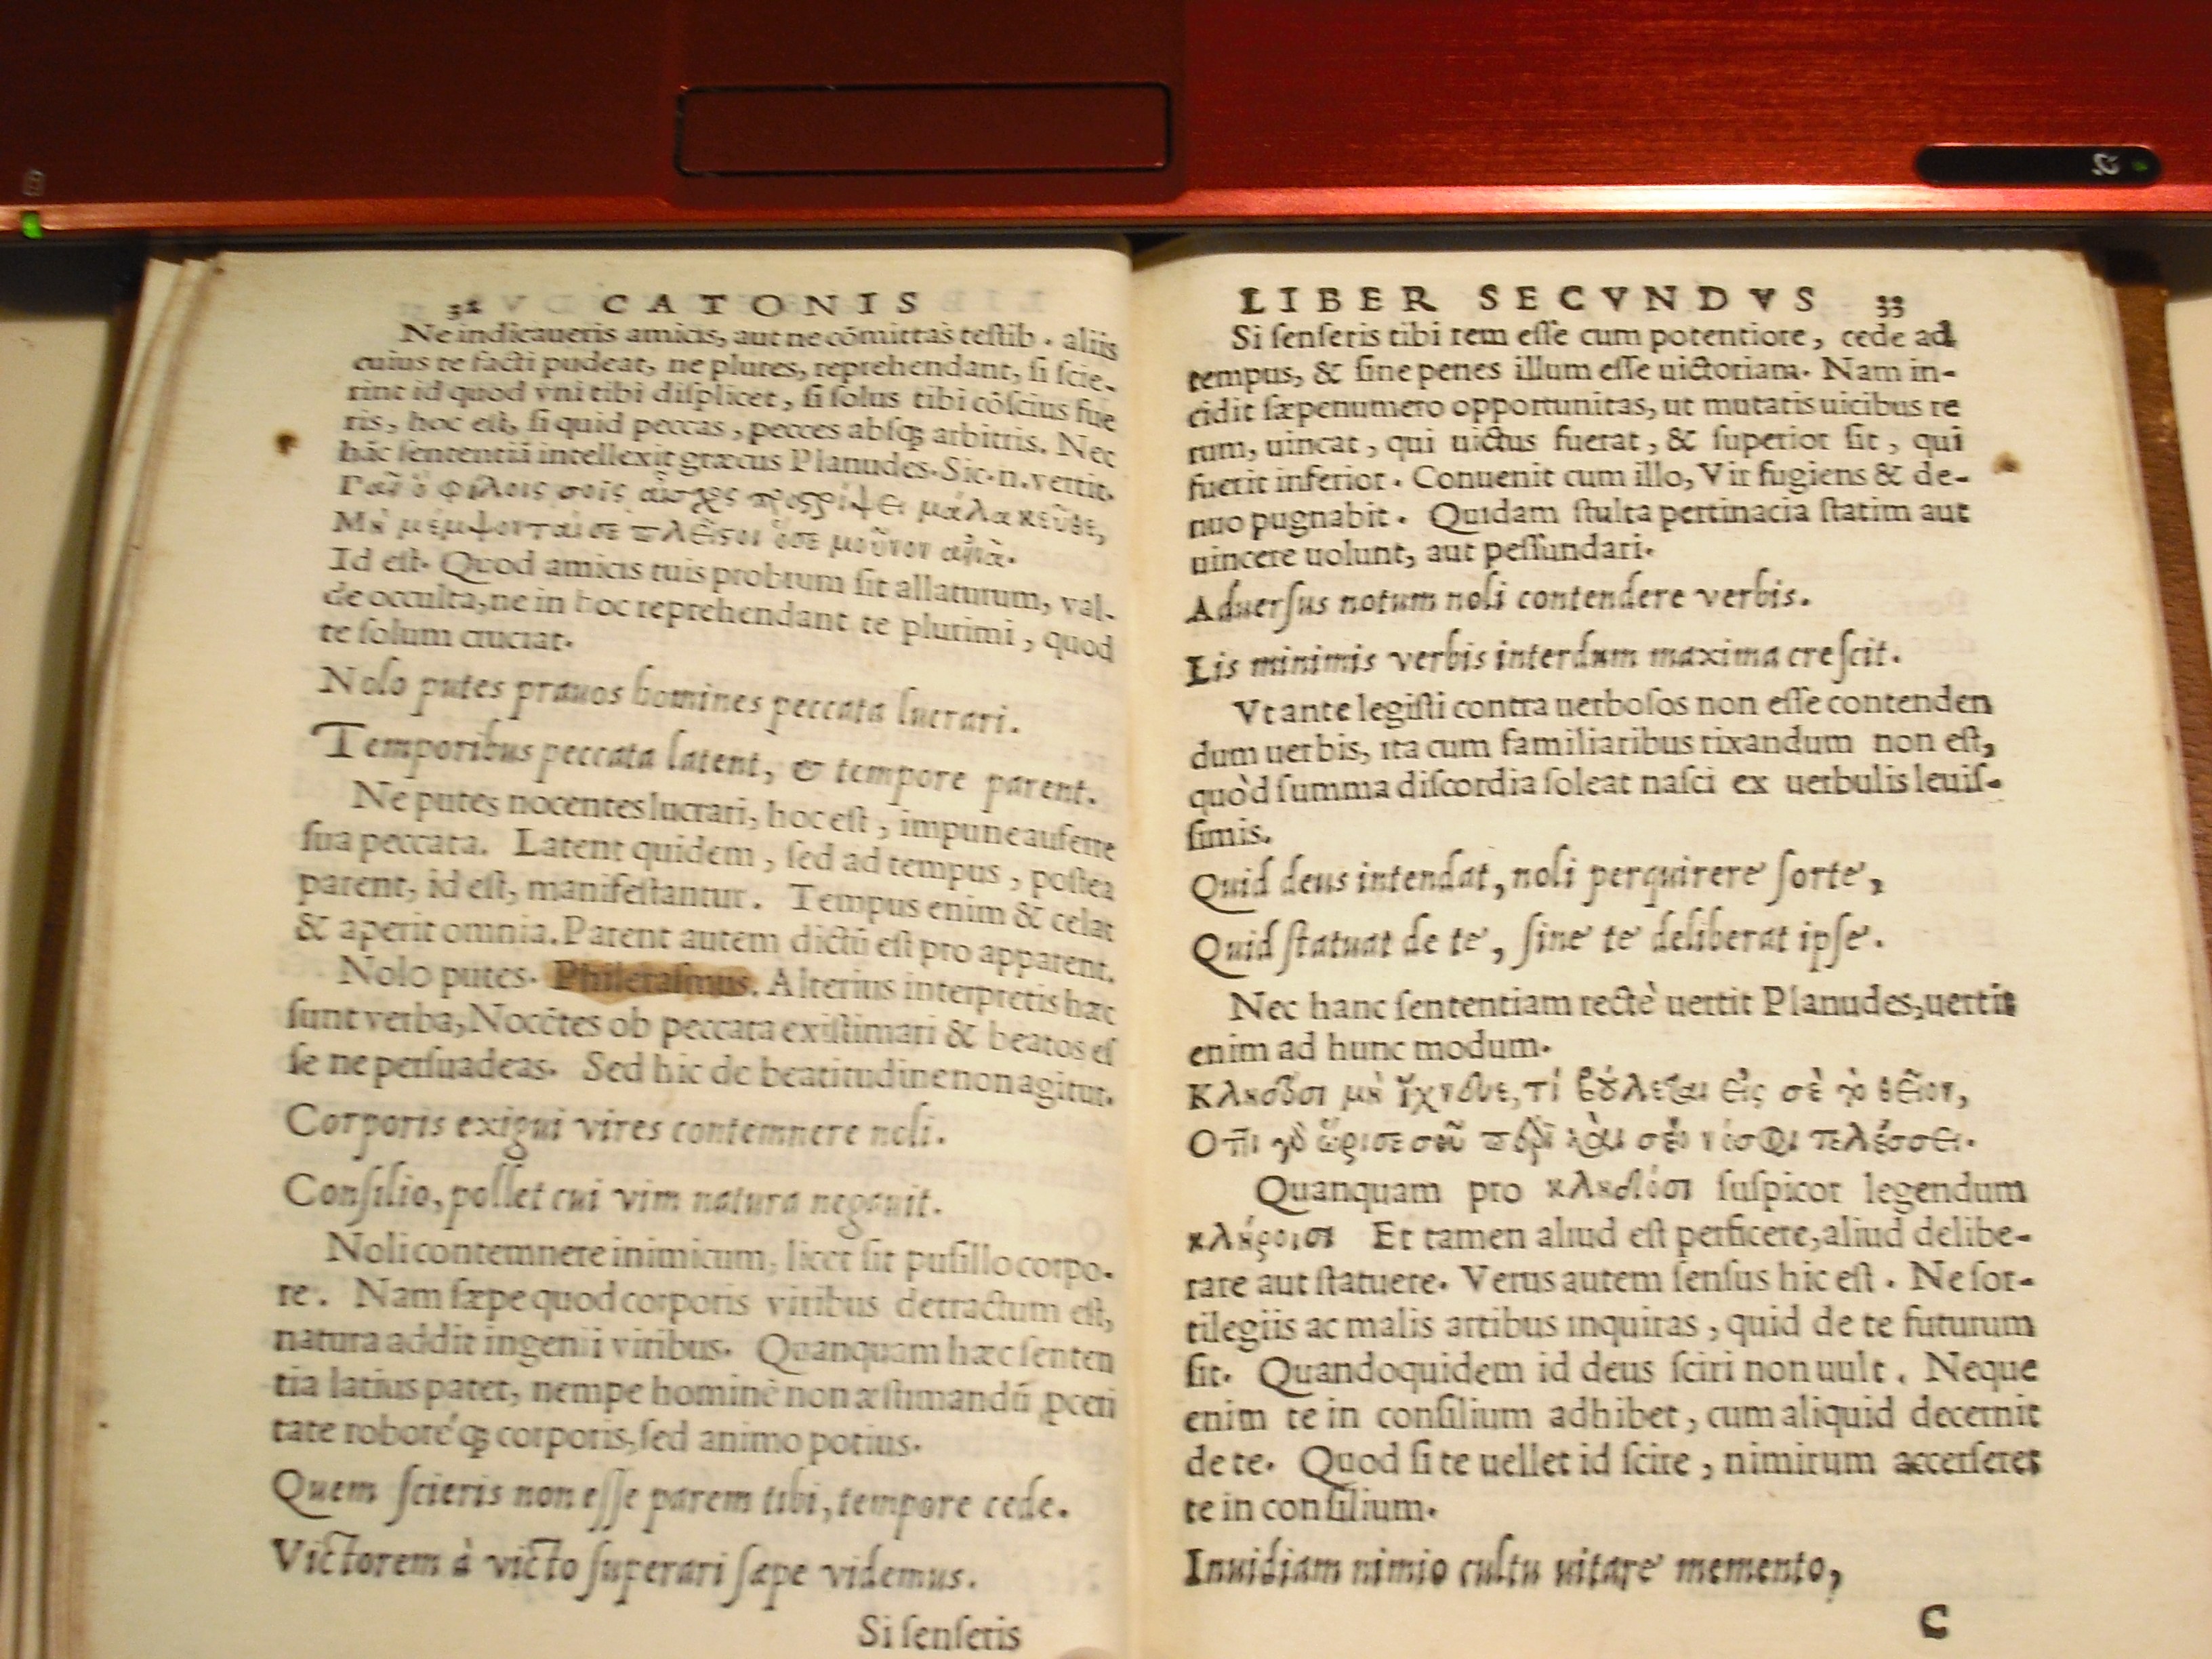 32 CATONIS
Ne indicaueris amicis, aut ne cōmittas testib. aliis
cuius te facti pudeat, ne plures, reprehendant, si scie-
rint id quod vni tibi displicet, si solus tibi cōscius fue
ris, hoc est, si quid peccas, pecces absq; arbitris. Nec
hāc sententiā intellexit græcus Planudes. Sic.n.vertit.
φίλοις σοῖς μάλα κεῦθε,
Μὴ μέμψονταί σε πλεῖστοι
Id est. Quod amicis tuis probrum sit allaturum, val-
de occulta, ne in hoc reprehendant te plurimi, quod
te solum cruciat.
Nolo putes prauos homines peccata lucrari.
Temporibus peccata latent, & tempore parent.
Ne putes nocentes lucrari, hoc est, impune auferre
sua peccata. Latent quidem, sed ad tempus, postea
parent, id est, manifestantur. Tempus enim & celat
& aperit omnia. Parent autem dictū est pro apparent.
Nolo putes. Philerasmus. Alterius interpretis hæc
sunt verba, Nocētes ob peccata existimari & beatos es
se ne persuadeas. Sed hic de beatitudine non agitur.
Corporis exigui vires contemnere noli.
Consilio, pollet cui vim natura negauit.
Noli contemnere inimicum, licet sit pusillo corpo-
re. Nam sæpe quod corporis viribus detractum est,
natura addit ingenii viribus. Quanquam hæc senten
tia latius patet, nempe hominē non æstimandū ꝓceri
tate roboreq; corporis, sed animo potius.
Quem scieris non esse parem tibi, tempore cede.
Victorem à victo superari sæpe videmus.
Si senseris
LIBER SECVNDVS 33
Si senseris tibi rem esse cum potentiore, cede ad
tempus, & sine penes illum esse uictoriam. Nam in-
cidit sæpenumero opportunitas, ut mutatis uicibus re
rum, uincat, qui uictus fuerat, & superior sit, qui
fuerit inferior. Conuenit cum illo, Vir fugiens & de-
nuo pugnabit. Quidam stulta pertinacia statim aut
uincere uolunt, aut pessundari.
Aduersus notum noli contendere verbis.
Lis minimis verbis interdum maxima crescit.
Vt ante legisti contra uerbosos non esse contenden
dum uerbis, ita cum familiaribus rixandum non est,
quòd summa discordia soleat nasci ex uerbulis leuis-
simis.
Quid deus intendat, noli perquirere sorte,
Quid statuat de te, sine te deliberat ipse.
Nec hanc sententiam rectè uertit Planudes, uertit
enim ad hunc modum.
Κληδόσι μὴ ἴχνευε, τί βούλεται εἰς σὲ τὸ θεῖον,
Ὅττι γὰρ ὥρισε σοῦ πέρι καὶ σέο νόσφι τελέσσει.
Quanquam pro κληδόσι suspicor legendum
κλήροισι Et tamen aliud est perficere, aliud delibe-
rare aut statuere. Verus autem sensus hic est. Ne sor-
tilegiis ac malis artibus inquiras, quid de te futurum
sit. Quandoquidem id deus sciri non uult. Neque
enim te in consilium adhibet, cum aliquid decernit
de te. Quod si te uellet id scire, nimirum accerseret
te in consilium.
Inuidiam nimio cultu uitare memento,
C